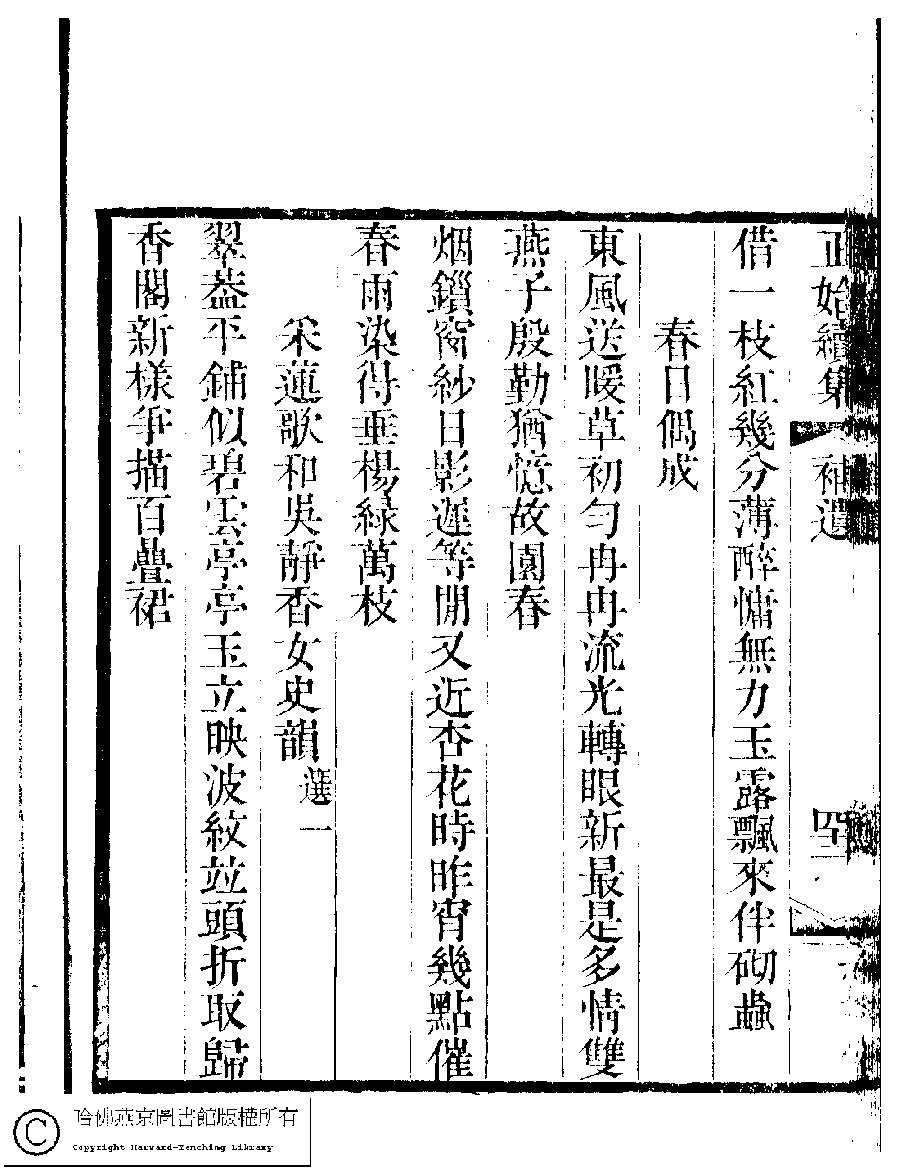 正始續集 補遺
借一枝紅幾分薄醉慵無力玉露飄來伴砌蟲
春日偶成
東風送暖草初勻冉冉流光轉眼新最是多情雙
燕子殷勤猶憶故園春
烟鎖窗紗日影遲等閒又近杏花時昨宵幾點催
春雨染得垂楊綠萬枝
采蓮歌和吳靜香女史韻 選一
翠葢平鋪似碧雲亭亭玉立映波紋竝頭折取歸
香閣新樣爭描百疊裙
哈佛燕京圖書館版權所有
Copyright Harvard-Yenching Library